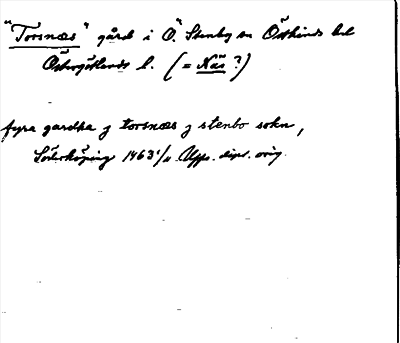 "Torsnæs" gård i Ö. Stenby sn Östkinds hd
Östergötlands l. (= Näs?)
fyra gardha j torsnæs j stenbo sokn,
Söderköping 1463 1/11 Upps. dipl. orig.